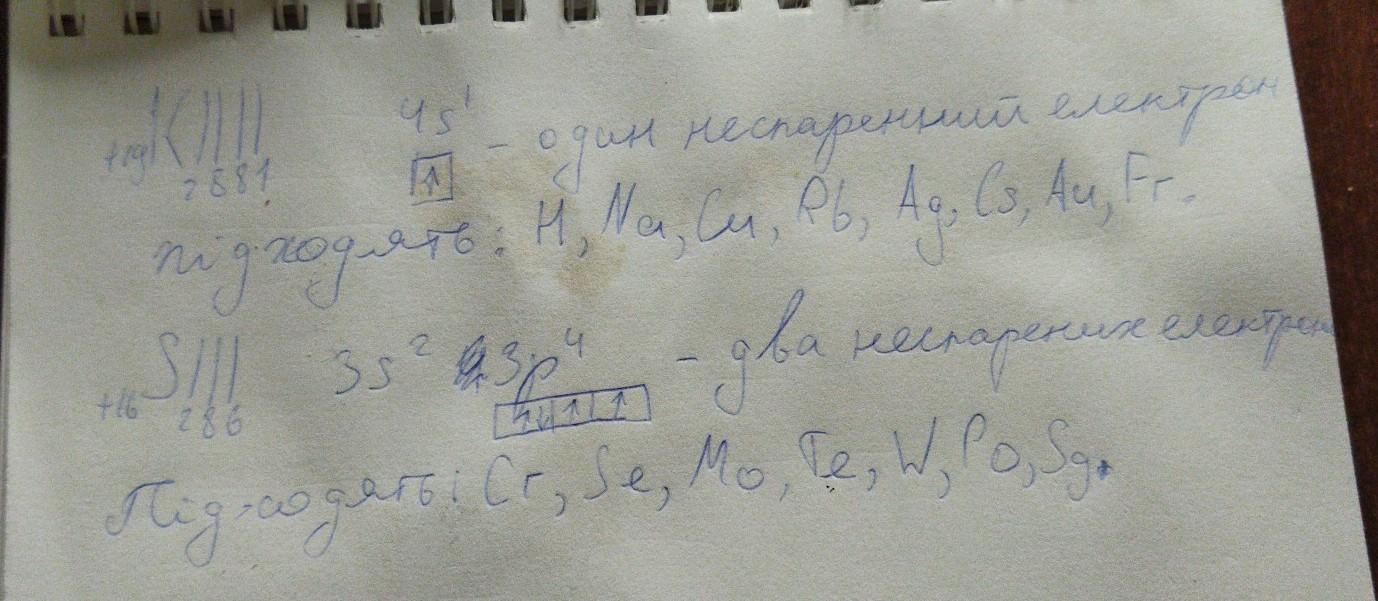 +19K)))) 4s¹ - один неспаренний електрон
2 8 8 1 ↑
підходять: H, Na, Cu, Rb, Ag, Cs, Au, Fr.
+16S))) 3s² 3p⁴ - два неспарених електрони
2 8 6 ↑↓ ↑ ↑
Підходять: Cr, Se, Mo, Te, W, Po, Sg.